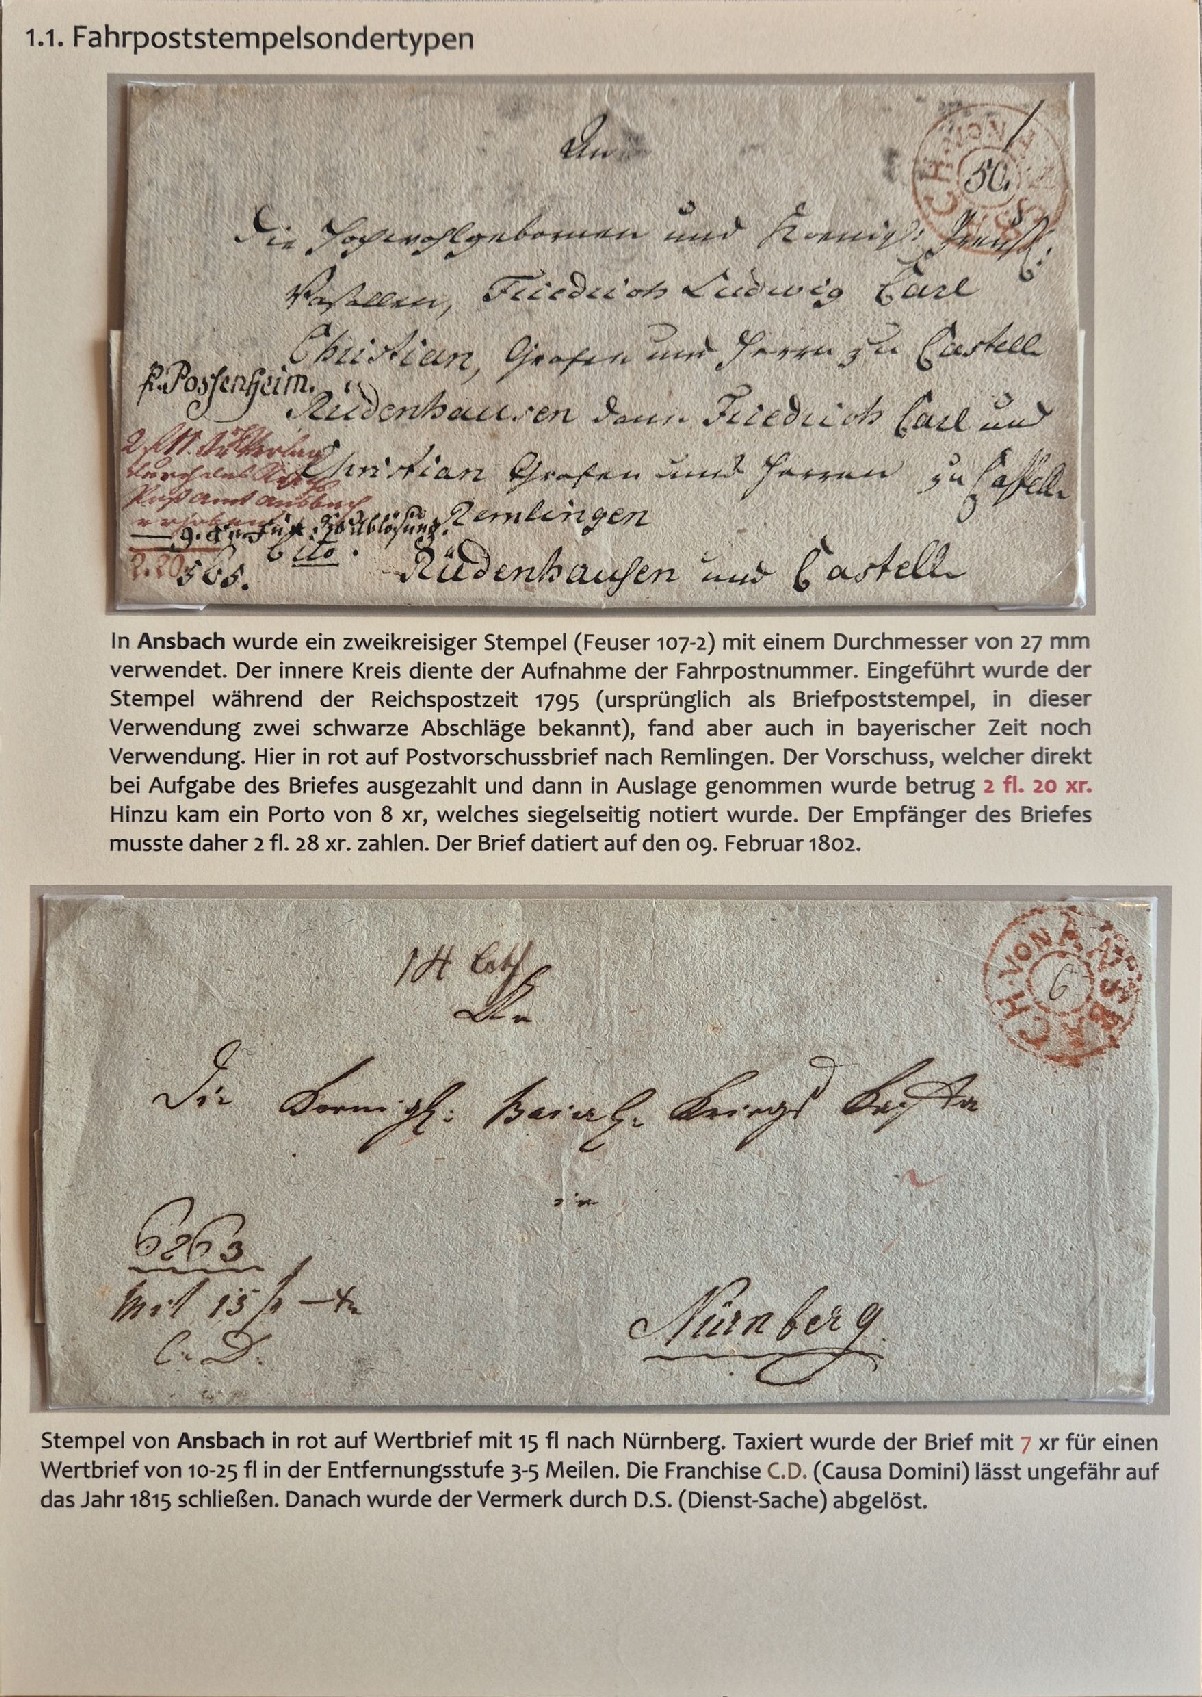 1.1. Fahrpoststempelsondertypen
CH·VON
50.
An
Die Hochwohlgebornen und Koenigl: Preuß:
Vasallen, Friedrich Ludwig Carl
Christian, Grafen und Herrn zu Castell
p. Possenheim.
Rüdenhausen dann Friedrich Carl und
Christian Grafen und Herren zu Castell
durch das
Post Amt Ansbach
Remlingen
Cito.
2.20
568.
Rüdenhausen und Castell
In Ansbach wurde ein zweikreisiger Stempel (Feuser 107-2) mit einem Durchmesser von 27 mm
verwendet. Der innere Kreis diente der Aufnahme der Fahrpostnummer. Eingeführt wurde der
Stempel während der Reichspostzeit 1795 (ursprünglich als Briefpoststempel, in dieser
Verwendung zwei schwarze Abschläge bekannt), fand aber auch in bayerischer Zeit noch
Verwendung. Hier in rot auf Postvorschussbrief nach Remlingen. Der Vorschuss, welcher direkt
bei Aufgabe des Briefes ausgezahlt und dann in Auslage genommen wurde betrug 2 fl. 20 xr.
Hinzu kam ein Porto von 8 xr, welches siegelseitig notiert wurde. Der Empfänger des Briefes
musste daher 2 fl. 28 xr. zahlen. Der Brief datiert auf den 09. Februar 1802.
CH·VON ANSBA
6
14 Loth
An
Die Koenigl: Baierl. Kriegs Kassa
in
6263
Mit 15 f
C. D.
Nürnberg.
Stempel von Ansbach in rot auf Wertbrief mit 15 fl nach Nürnberg. Taxiert wurde der Brief mit 7 xr für einen
Wertbrief von 10-25 fl in der Entfernungsstufe 3-5 Meilen. Die Franchise C.D. (Causa Domini) lässt ungefähr auf
das Jahr 1815 schließen. Danach wurde der Vermerk durch D.S. (Dienst-Sache) abgelöst.